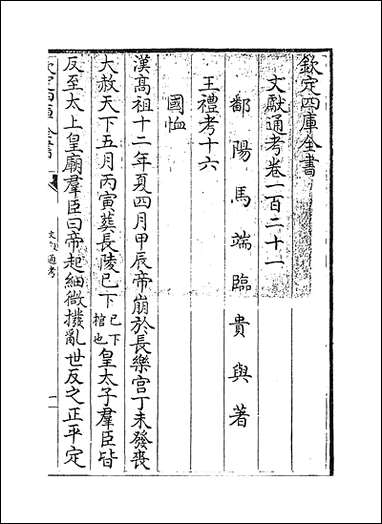 欽定四庫全書
文獻通考卷一百二十一
鄱陽馬端臨貴與著
王禮考十六
國恤
漢髙祖十二年夏四月甲辰帝崩於長樂宫丁未發喪
大赦天下五月丙寅葬長陵已下已下棺也皇太子羣臣皆
反至太上皇廟羣臣曰帝起細微撥亂世反之正平定
文獻通考